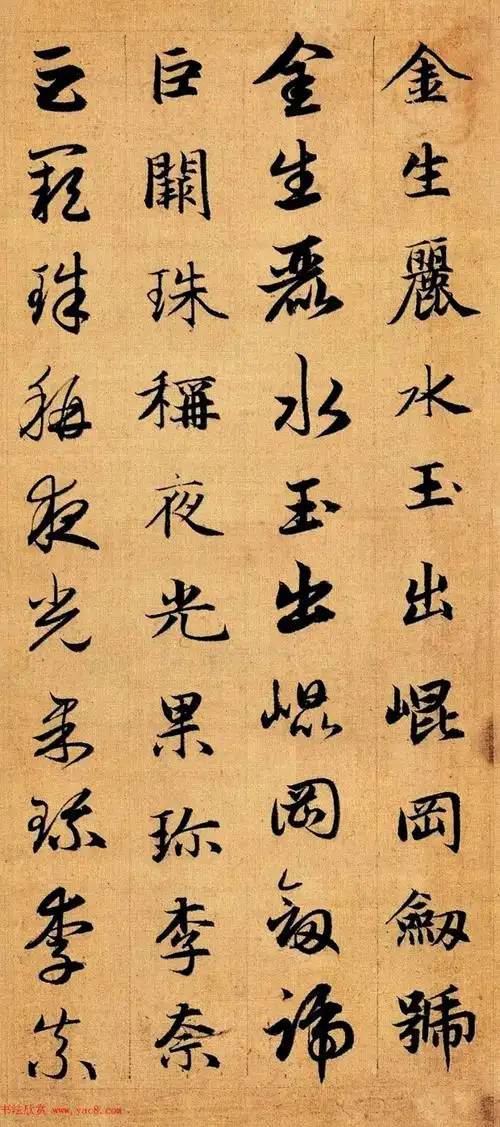 金生麗水玉出崐岡劔號
金生麗水玉出崐岡劔號
巨闕珠稱夜光果珎李柰
巨闕珠稱夜光果珎李柰
书法欣赏 www.yac8.com